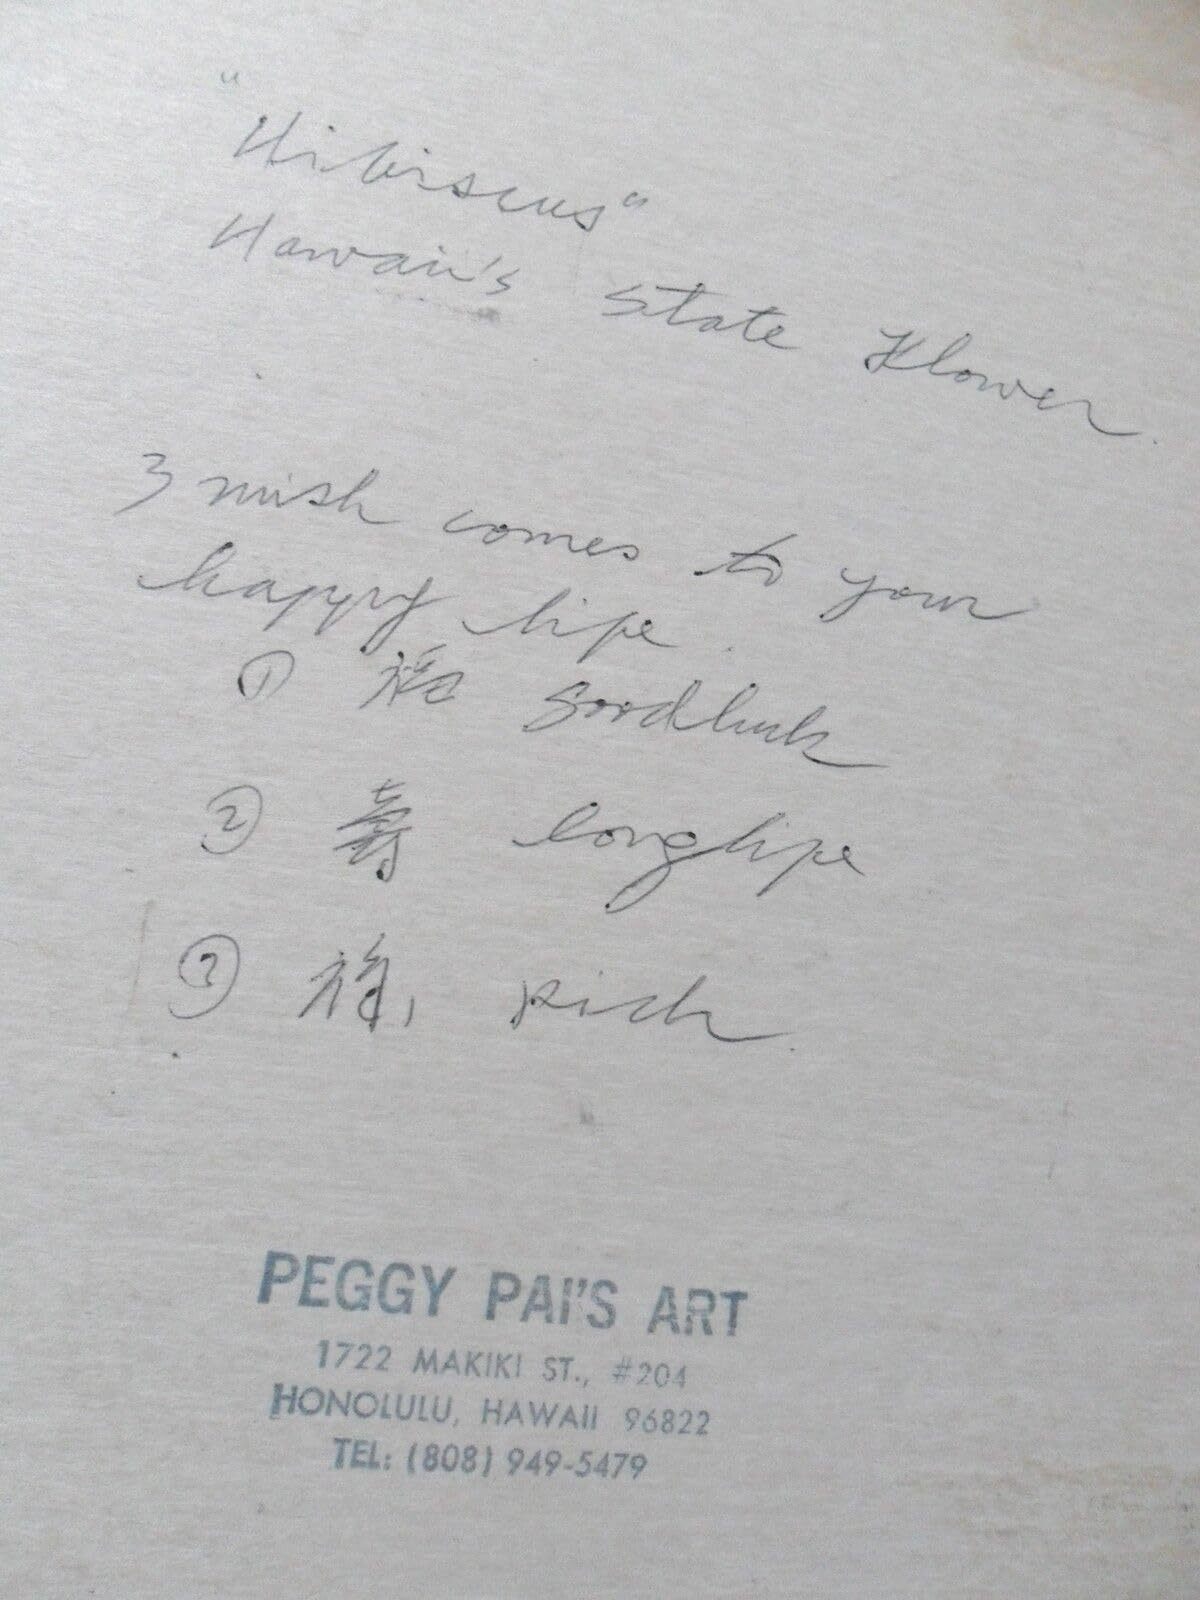 "Hibiscus"
Hawaii's State Flower.
3 wish comes to your
happy life.
① good luck
② 壽 long life
③ rich.
PEGGY PAI'S ART
1722 MAKIKI ST., #204
HONOLULU, HAWAII 96822
TEL: (808) 949-5479